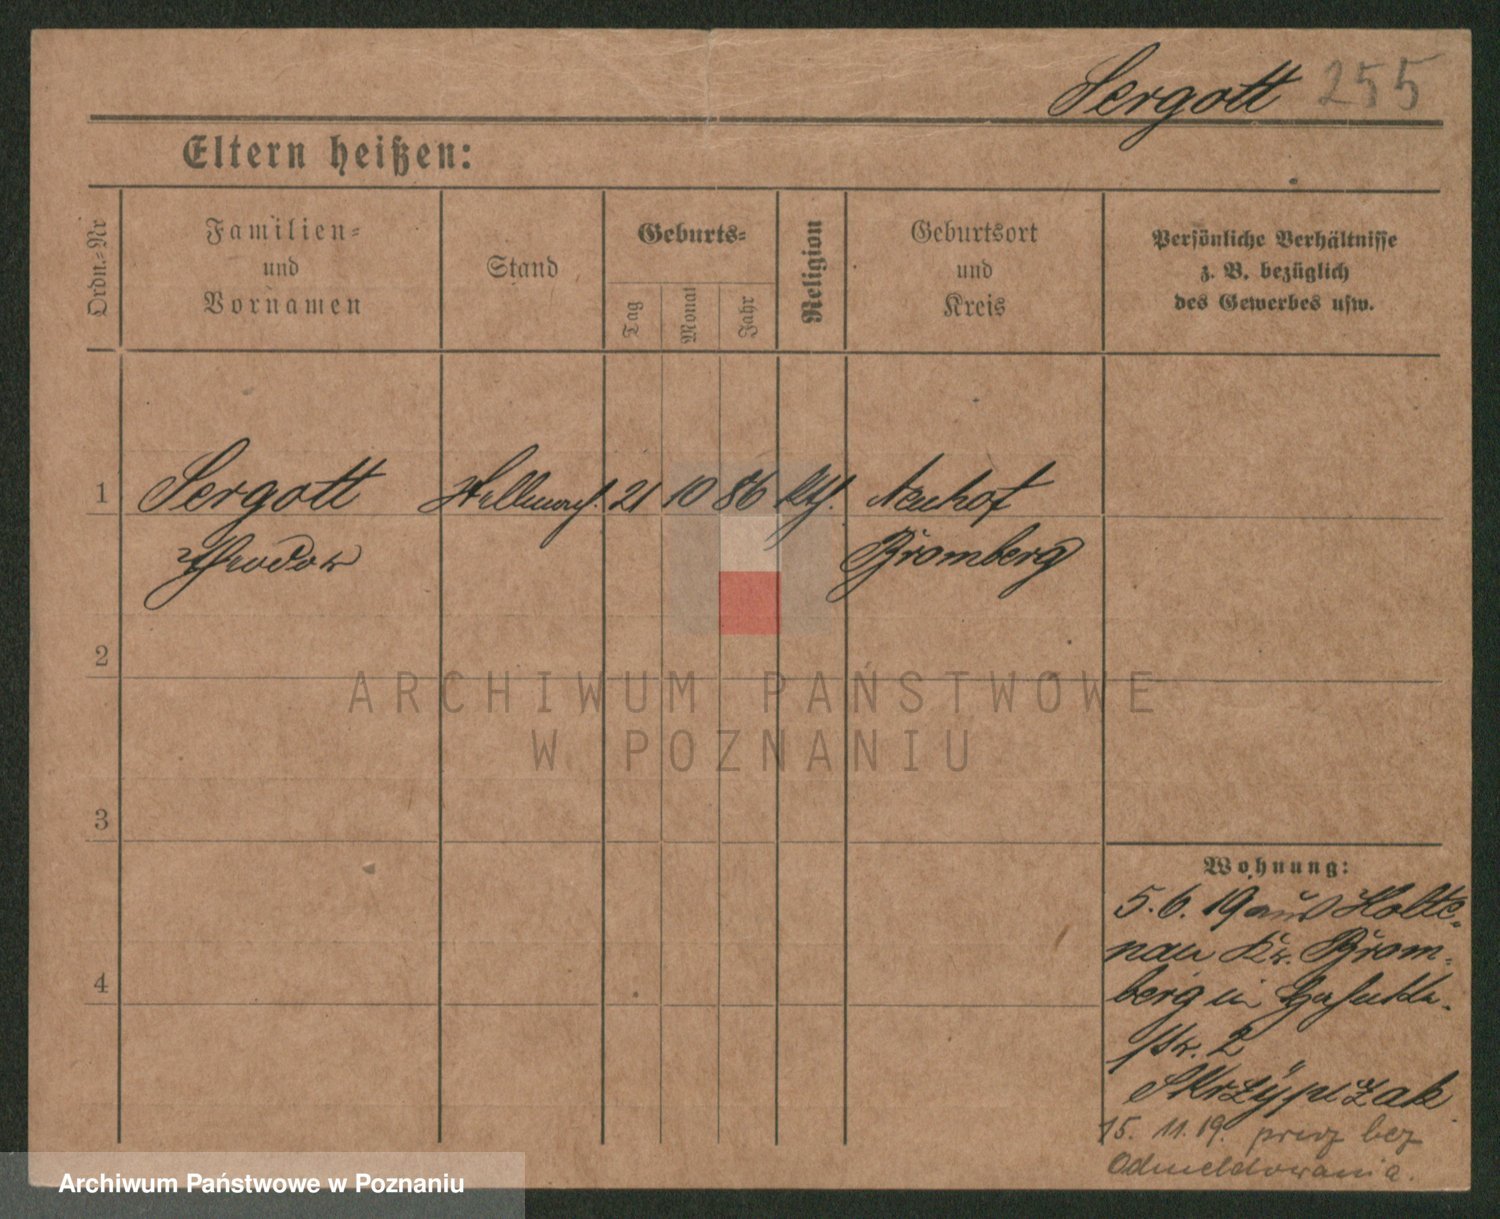 Sergott 255
Eltern heißen:
Ordn.-Nr
Familien-
und
Vornamen
Stand
Geburts-
Tag
Monat
Jahr
Religion
Geburtsort
und
Kreis
Persönliche Verhältnisse
z. B. bezüglich
des Gewerbes usw.
1 Sergott 21 10 86 Neuhof
Theodor Bromberg
2
3
4
Wohnung:
5. 6. 19 aus Holte-
nau Kr. Brom-
berg in
str. 2
Skrzypczak
15. 11. 19. prec bez
Odmeldowania.
ARCHIWUM PAŃSTWOWE
W POZNANIU
Archiwum Państwowe w Poznaniu